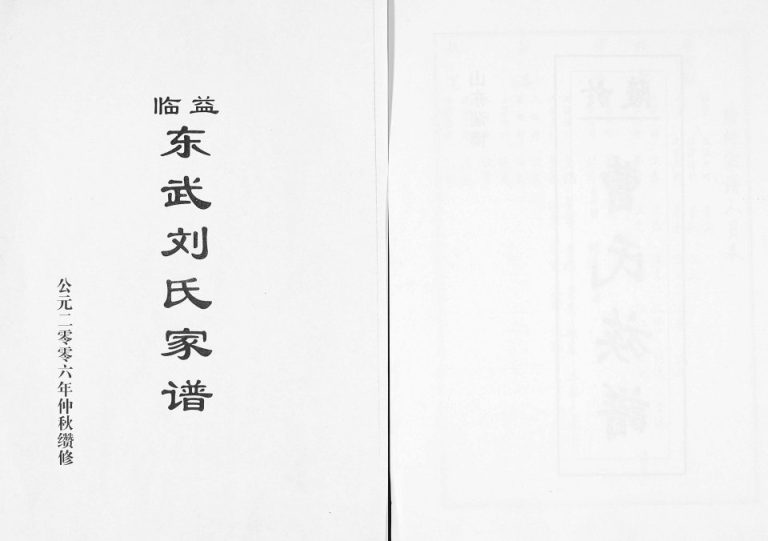 临益
东武刘氏家谱
公元二零零六年仲秋缵修